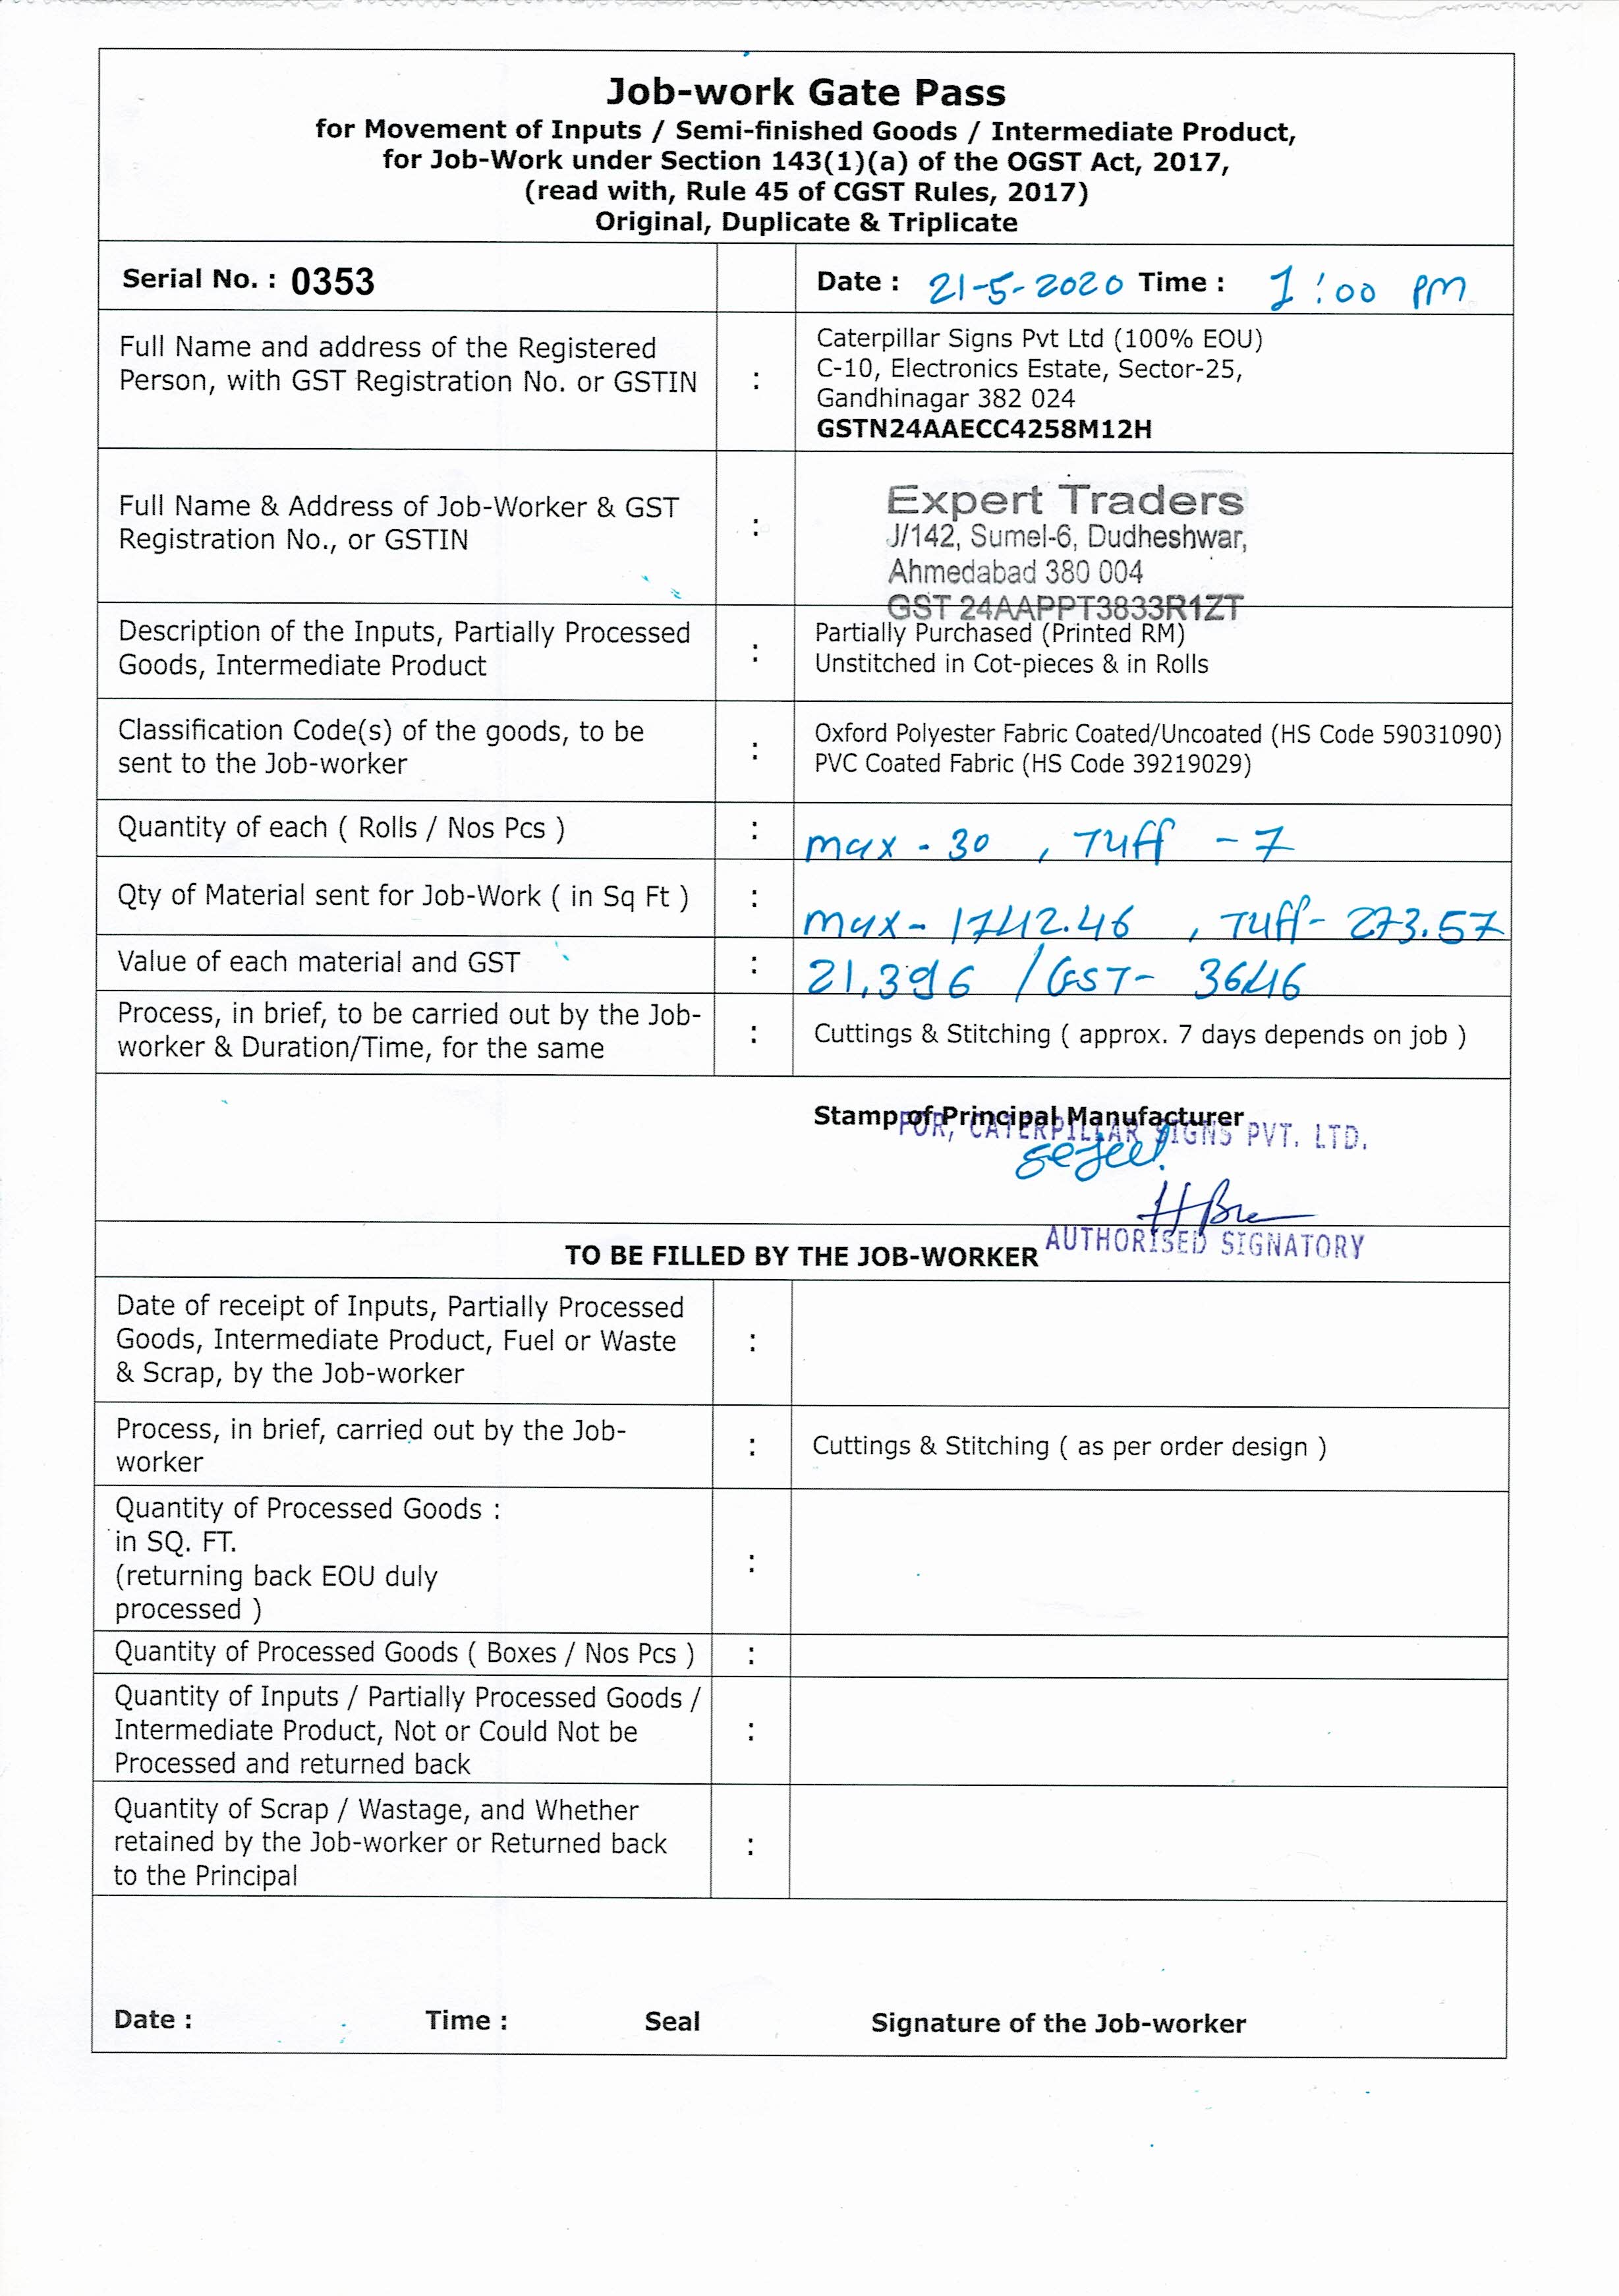 Job-work Gate Pass
for Movement of Inputs / Semi-finished Goods / Intermediate Product,
for Job-Work under Section 143(1)(a) of the OGST Act, 2017,
(read with, Rule 45 of CGST Rules, 2017)
Original, Duplicate & Triplicate
Serial No. : 0353
Date : 21-5-2020 Time : 1:00 PM
Full Name and address of the Registered
Person, with GST Registration No. or GSTIN
:
Caterpillar Signs Pvt Ltd (100% EOU)
C-10, Electronics Estate, Sector-25,
Gandhinagar 382 024
GSTN24AAECC4258M12H
Full Name & Address of Job-Worker & GST
Registration No., or GSTIN
:
Expert Traders
J/142, Sumel-6, Dudheshwar,
Ahmedabad 380 004
GST 24AAPPT3833R1ZT
Description of the Inputs, Partially Processed
Goods, Intermediate Product
:
Partially Purchased (Printed RM)
Unstitched in Cot-pieces & in Rolls
Classification Code(s) of the goods, to be
sent to the Job-worker
:
Oxford Polyester Fabric Coated/Uncoated (HS Code 59031090)
PVC Coated Fabric (HS Code 39219029)
Quantity of each ( Rolls / Nos Pcs )
:
max - 30 , Tuff - 7
Qty of Material sent for Job-Work ( in Sq Ft )
:
max - 1742.46 , Tuff - 273.57
Value of each material and GST
:
21,396 / GST - 3646
Process, in brief, to be carried out by the Job-
worker & Duration/Time, for the same
:
Cuttings & Stitching ( approx. 7 days depends on job )
Stamp of Principal Manufacturer
FOR, CATERPILLAR SIGNS PVT. LTD.
AUTHORISED SIGNATORY
TO BE FILLED BY THE JOB-WORKER
Date of receipt of Inputs, Partially Processed
Goods, Intermediate Product, Fuel or Waste
& Scrap, by the Job-worker
:
Process, in brief, carried out by the Job-
worker
:
Cuttings & Stitching ( as per order design )
Quantity of Processed Goods :
in SQ. FT.
(returning back EOU duly
processed )
:
Quantity of Processed Goods ( Boxes / Nos Pcs )
:
Quantity of Inputs / Partially Processed Goods /
Intermediate Product, Not or Could Not be
Processed and returned back
:
Quantity of Scrap / Wastage, and Whether
retained by the Job-worker or Returned back
to the Principal
:
Date : Time : Seal Signature of the Job-worker